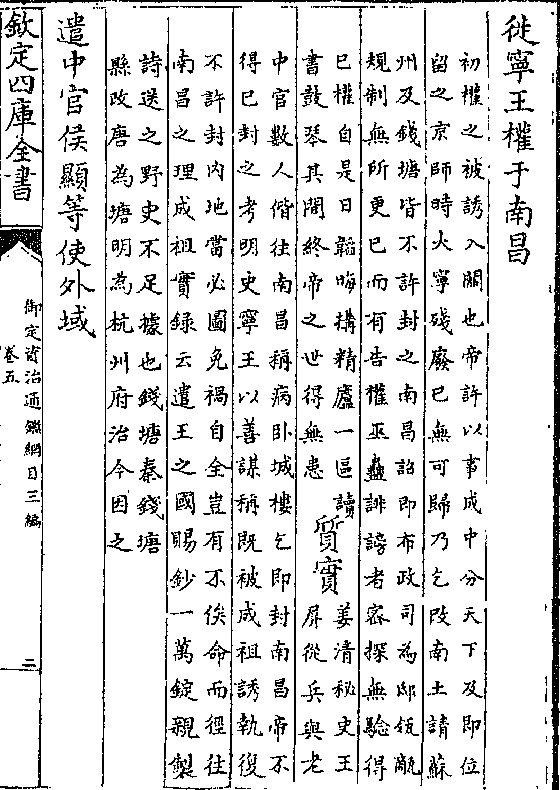 徙寧王權于南昌
初權之被誘入關也帝許以事成中分天下及即位
留之京師時大寧殘廢已無可歸乃乞改南土請蘇
州及錢塘皆不許封之南昌詔即布政司為邸瓴甋
規制無所更已而有告權巫蠱誹謗者密探無驗得
已權自是日韜晦構精廬一區讀
書鼓琴其間終帝之世得無患
質實
姜清秘史王
屏從兵與老
中官數人偕往南昌稱病卧城樓乞即封南昌帝不
得已封之考明史寧王以善謀稱既被成祖誘執復
不許封内地當必圖免禍自全豈有不俟命而徑往
南昌之理成祖實錄云遣王之國賜鈔一萬錠親製
詩送之野史不足據也錢塘秦錢塘
縣改唐為塘明為杭州府治今因之
遣中官侯顯等使外域
欽定四庫全書
御定資治通鑑綱目三編
卷五
二